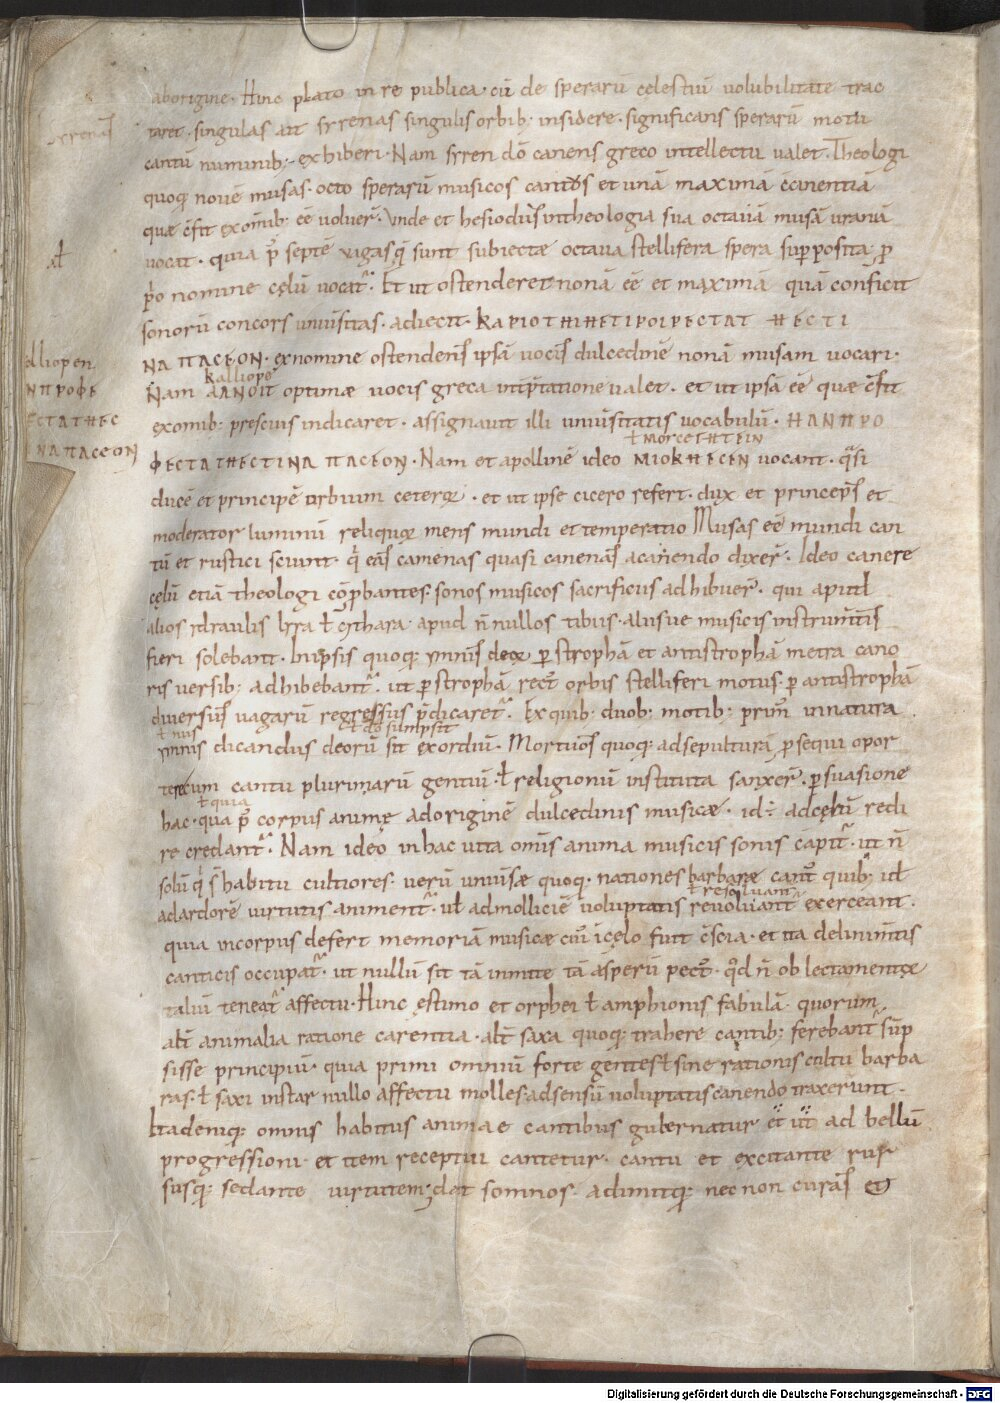 aborigine. Hinc plato in re publica. cū de sperarū cęlestiū volubilitate trac
taret. singulas ait syrenas singulis orbib; insidere. significans sperarū motu
cantū numinib; exhiberi. Nam syren dō canens greco intellectu valet. Theologi
quoq; novē musas. octo sperarū musicos cantus et unā maximā cc̄inentiā
quæ c̄fit ex omīb; eē voluer̄. Unde et hesiodus in theologia sua octavā musā uraniā
vocat. quia p̄ septē vagas q̨ sunt subiectæ octava stellifera spera sup̄posita p̄
p̄o nomine cęlū vocat᷑. Et ut ostenderet nonā eē et maximā quā conficit
sonorū concors univ̄sitas. adiecit. ΚΑΡΙΟΤΗΙΗΕΤΙΡΟΙΡΕCΤΑΤ ΗΕCΤΙ
ΝΑ ΠΑCΕΟΝ. ex nomine ostendens ipsā vocis dulcedinē nonā musam vocari.
kalliope
Nam ΑΛΝΟΙΙΤ optimæ vocis greca int̄p̄tatione valet. et ut ipsā eē quæ c̄fit
ex omīb; pressius indicaret. assignavit illi univ̄sitatis vocabulū. ΗΑΝΠΡΟ
ł ΜΟΡCΕΤΗΤΕΙΝ
ΦΕCΤΑΤΗΕCΤΙΝΑ ΠΑCΕΟΝ. Nam et apollinē ideo ΜΙΟΚΗΕCΕΝ vocant. q̄si
ducē et principē orbium ceterorꝝ. et ut ipse cicero refert. dux et princeps et
moderator luminū reliquorꝝ mens mundi et temperatio Musas eē mundi can
tū et rustici sciunt. q̇ eas camenas quasi canenas a canendo dixer̄. Ideo canere
cęlū etiā theologi cōp̄bantes. sonos musicos sacrificiis adhibuer̄. qui apud
alios ydraulis lyra ł cythara. apud n̄nullos tibiis. aliisve musicis instrum̄tis
fieri solebant. In ipsis quoq; ymnis deorꝝ p̄ strophā et antistrophā metra cano
ris versib; adhibebant᷑. ut p̄ strophā rect᷒ orbis stelliferi motus. p̄ antistrophā
diversus vagarū regressus p̄dicaret᷑. Ex quib; duob; motib; prim᷒ in natura
ł nus
ł do sumpsit
ymnis dicandus deorū sit exordiū. Mortuos quoq; ad sepulturā p̄sequi opor
tere cum cantu plurimarū gentiū ł religionū instituta sanxer̄. p̄suasione
ł quia
hac. qua p̄ corpus animę ad originē dulcedinis musicæ. id÷ ad cęlū redi
re credant᷑. Nam ideo in hac vita om̄is anima musicis sonis capit᷑. ut n̄
solū q̇ s̄ habitu cultiores. verū univ̄sæ quoq; nationes barbaræ cant᷒ quib; ul̄
ł resolvant᷑
ad ardorē virtutis animent᷑. ul̄ ad molliciē voluptatis revolvant᷑ exerceant.
quia in corpus defert memoriā musicæ cui᷒ ī cęlo fuit c̄scia. et ita delinim̄tis
canticis occupat᷑. ut nullū sit tā inmite tā asperū pect᷒. qd̄ n̄ oblectamentorꝝ
taliū teneat᷑ affectu. Hinc ęstimo et orphei ł amphionis fabulā. quorum
alt̄ animalia ratione carentia. alt̄ saxa quoq; trahere cantib; ferebant᷑ sūp
sisse principiū. quia primi omniū forte gentes ł sine rationis cultu barba
ras. ł saxi instar nullo affectu molles. ad sensū voluptatis canendo traxerunt.
Ita deniq; omnis habitus animae cantibus gubernatur et ut ad bellū
progressioni. et item receptui cantetur. cantu et excitante rur
susq; sedante virtutem; dat somnos. adimitq; nec non curas et
Syrenas
al̄
alliopen
ΝΠΡΟΦΕ
ΕCΤΑΤΗΕC
ΙΝΑΠΑCΕΟΝ
Digitalisierung gefördert durch die Deutsche Forschungsgemeinschaft - DFG